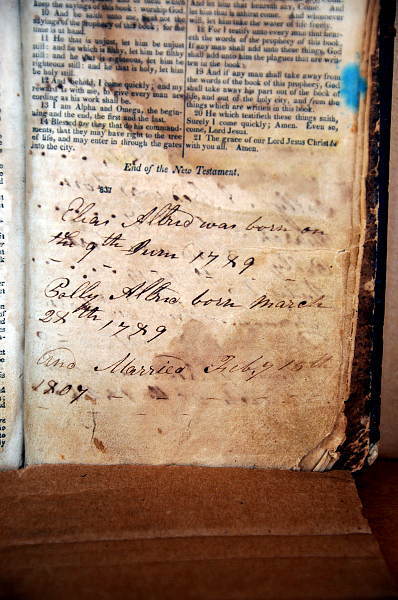 keep the sayings of this book: worship God.
10 And he saith unto me, Seal not the
sayings of the prophecy of this book; for the
time is at hand.
11 He that is unjust, let him be unjust
still: and he which is filthy, let him be filthy
still: and he that is righteous, let him be
righteous still: and he that is holy, let him
be holy still.
12 And behold, I come quickly; and my
reward is with me, to give every man ac-
cording as his work shall be.
13 I am Alpha and Omega, the begin-
ning and the end, the first and the last.
14 Blessed are they that do his command-
ments, that they may have right to the tree
of life, and may enter in through the gates
into the city.
that heareth say, Come. And
let him that is athirst come. And whosoever
will, let him take the water of life freely.
18 For I testify unto every man that hear-
eth the words of the prophecy of this book,
If any man shall add unto these things, God
shall add unto him the plagues that are writ-
ten in this book:
19 And if any man shall take away from
the words of the book of this prophecy, God
shall take away his part out of the book of
life, and out of the holy city, and from the
things which are written in this book.
20 He which testifieth these things saith,
Surely I come quickly; Amen. Even so,
come, Lord Jesus.
21 The grace of our Lord Jesus Christ be
with you all. Amen.
End of the New Testament.
837
Elias Allred was born on
the 9th Juin 1789
Polly Allred born March
28th 1789
And Married Feby 15th
1807